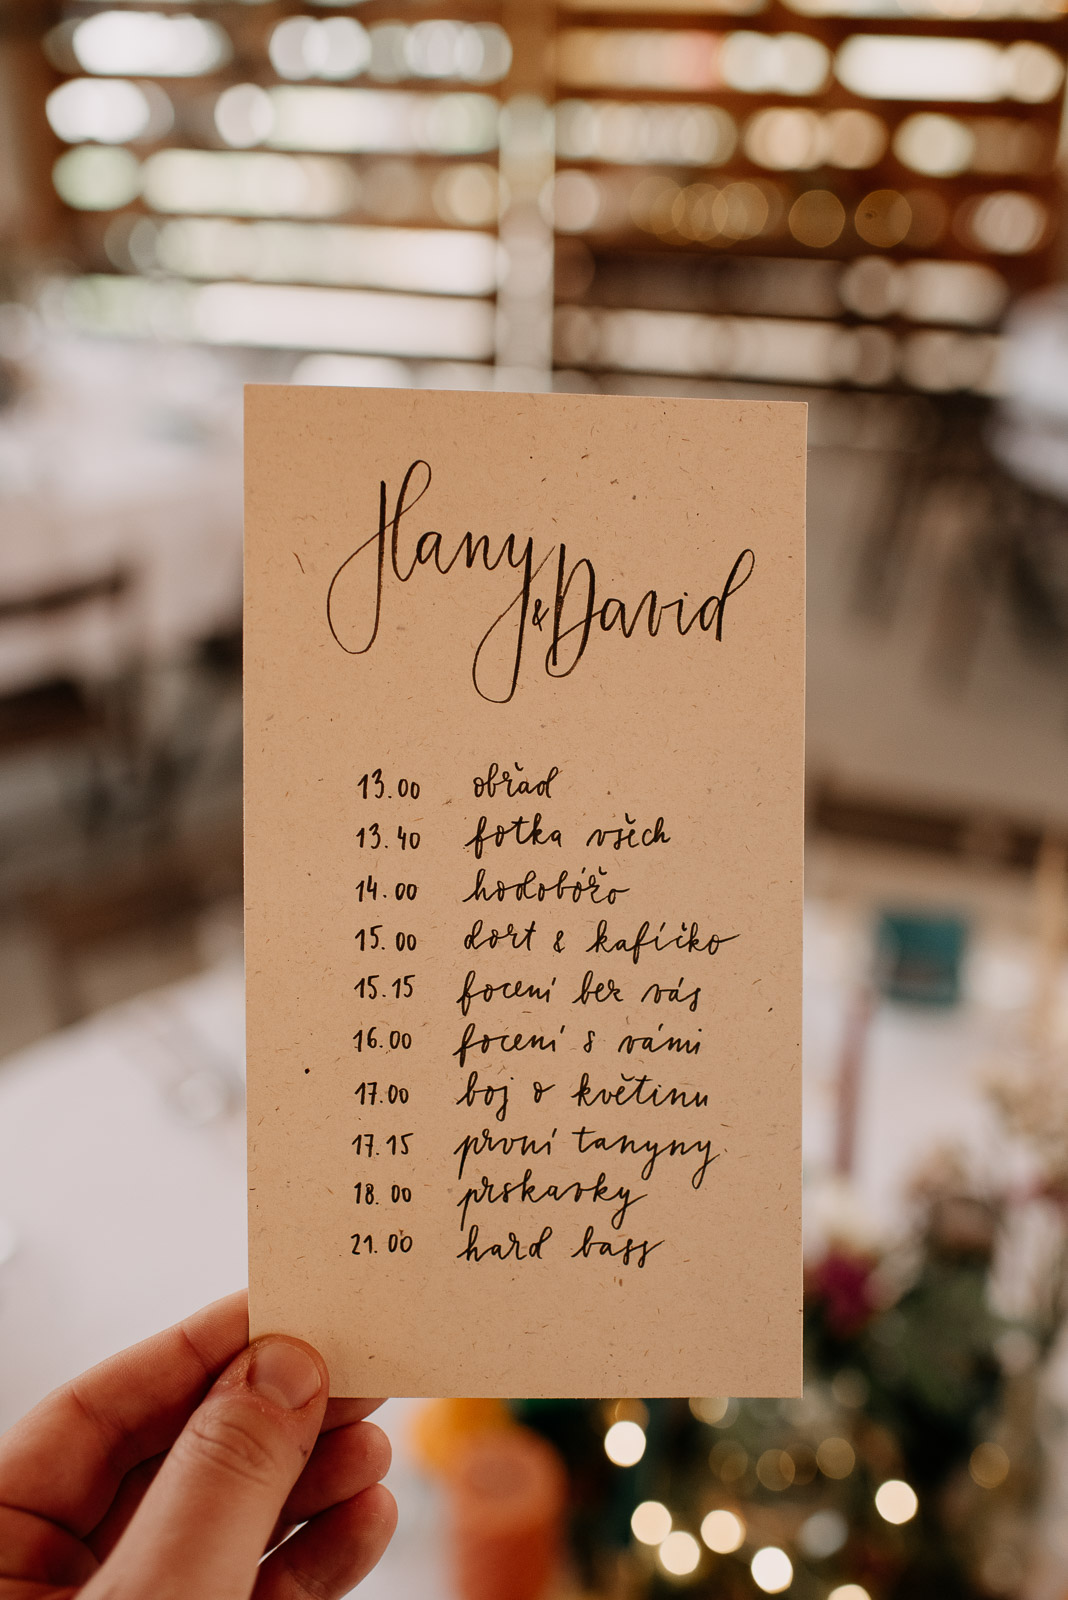 Hany
& David
13.00 obřad
13.40 fotka všech
14.00 hodobóžo
15.00 dort & kafíčko
15.15 focení bez vás
16.00 focení s vámi
17.00 boj o květinu
17.15 první tanyny
18.00 prskavky
21.00 hard bass